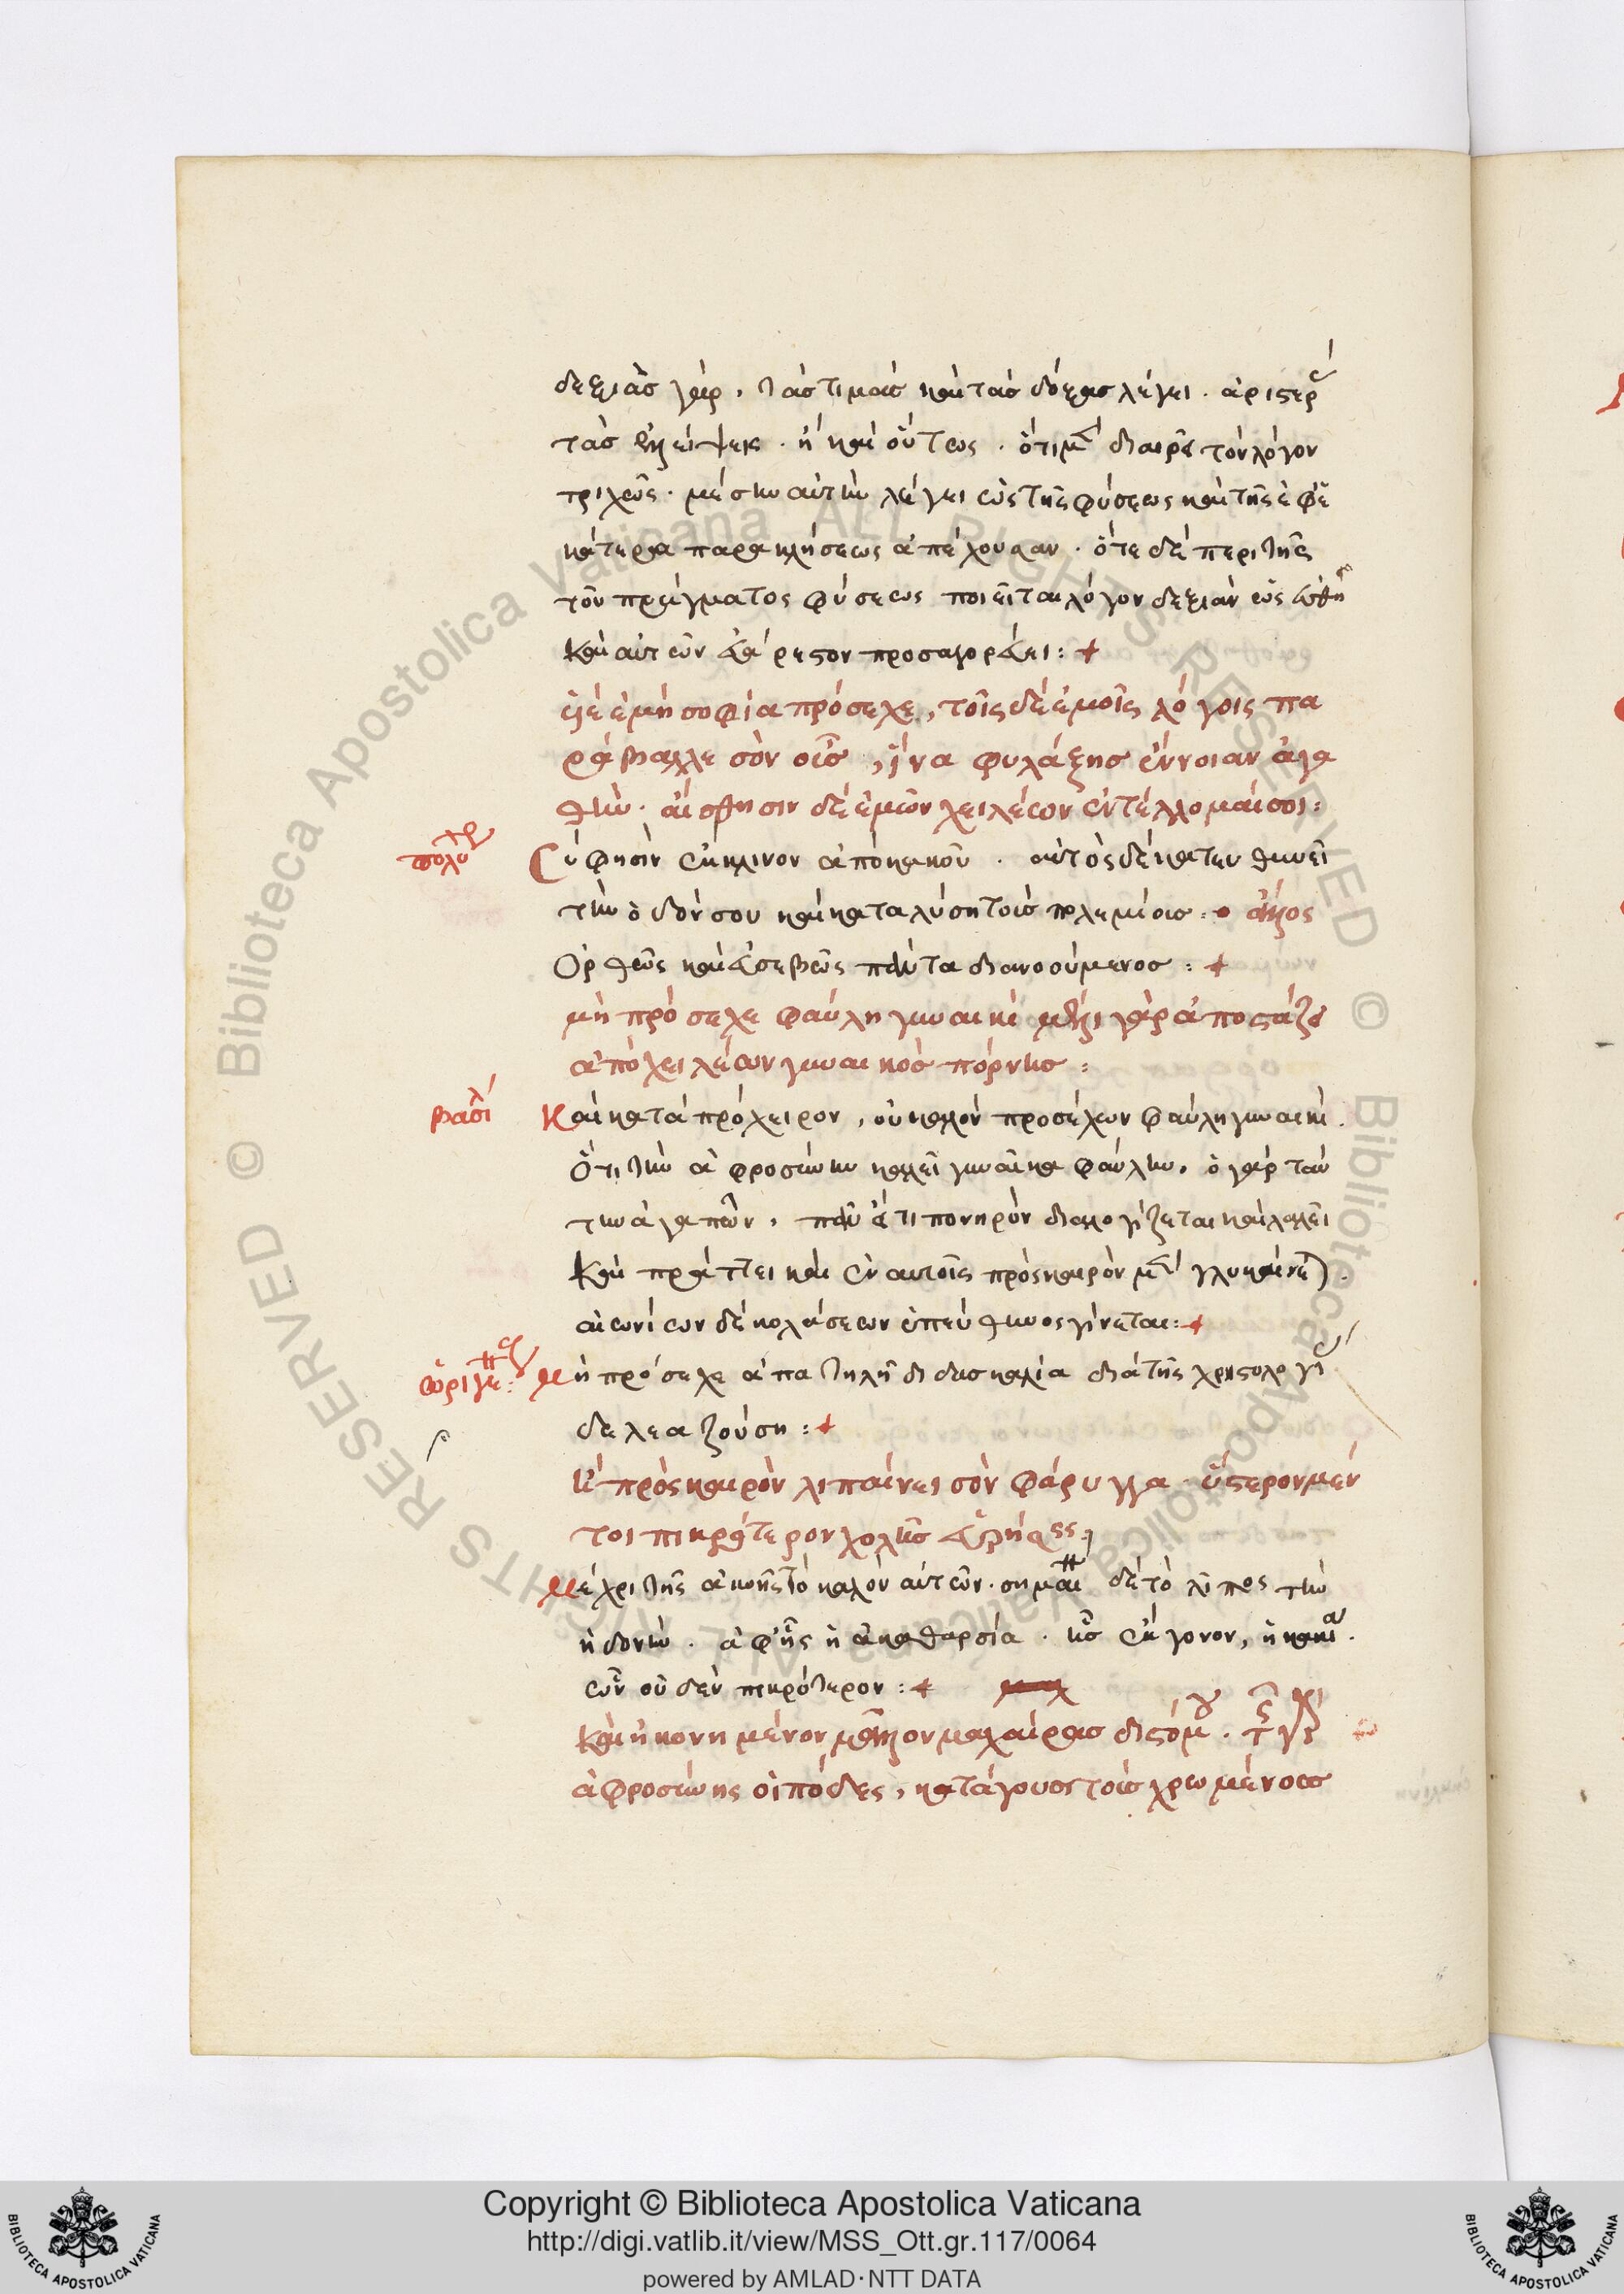 δεξιὰς γάρ, τὰς τιμὰς καὶ τὰς δόξας λέγει. ἀριστερ
τὰς θλίψεις. ἢ καὶ οὕτως. ὅτι μὲν διαιρεῖ τὸν λόγον
τριχῶς. μέσην αὐτὴν λέγει ὡς τῆς φύσεως καὶ τῆς ἐφ' ἑ
κάτερα παρακλήσεως ἀπέχουσαν. ὅτε δὲ περὶ τῆς
τοῦ πράγματος φύσεως ποιεῖται λόγον δεξιὰν ὡς
καὶ αὐτῶν εὐάρεστον προσαγορεύει:+
υἱὲ ἐμῇ σοφία πρόσεχε, τοῖς δὲ ἐμοῖς λόγοις πα
ράβαλλε σὸν οὖς, ἵνα φυλάξης ἔννοιαν ἀγα
θήν. αἴσθησιν δὲ ἐμῶν χειλέων ἐντέλλομαί σοι:
πολυχρ
Σύ φησιν ἔκκλινον ἀπὸ κακοῦ. αὐτὸς δὲ κατευθυνεῖ
τὴν ὁδόν σου καὶ καταλύση τοὺς πολεμίους: ἄλλος
Ὀρθῶς καὶ εὐσεβῶς πάντα διανοούμενος:+
μὴ πρόσεχε φαύλη γυναικί μέλι γὰρ ἀποστάζει
ἀπὸ χειλέων γυναικὸς πόρνης:
βασιλ
Καὶ κατὰ πρόχειρον, οὐ καλὸν προσέχων φαύλη γυναικί.
Ὅτι τὴν ἀφροσύνην καλεῖ γυναῖκα φαύλην. ὁ γὰρ ταύ
την ἀγαπῶν, πᾶν εἴ τι πονηρὸν διαλογίζεται καὶ λαλεῖ
καὶ πράττει καὶ ἐν αὐτοῖς πρὸς καιρὸν μὲν γλυκαίνεται.
αἰωνίων δὲ κολάσεων ὑπεύθυνος γίνεται:+
ὠριγέ: Μὴ πρόσεχε ἀπατηλῆ διδασκαλία διὰ τῆς χρηστολογί
δελεαζούση:+
Ἣ πρὸς καιρὸν λιπαίνει σὸν φάρυγγα. ὕστερον μέν
τοι πικρότερον χολῆς εὑρήσεις,
Μέχρι τῆς ἀκοῆς τὸ καλὸν αὐτῶν. σημαίνει δὲ τὸ λῖπος τὴν
ἡδονήν. ἀφ' ἧς ἡ ἀκαθαρσία. ἧς ἔκγονον, ἡ κακία.
ὧν οὐδὲν πικρότερον:+
καὶ ἠκονημένον μᾶλλον μαχαίρας διστόμου. τῆς γὰρ
ἀφροσύνης οἱ πόδες, κατάγουσι τοὺς χρωμένους
Copyright © Biblioteca Apostolica Vaticana
http://digi.vatlib.it/view/MSS_Ott.gr.117/0064
powered by AMLAD·NTT DATA